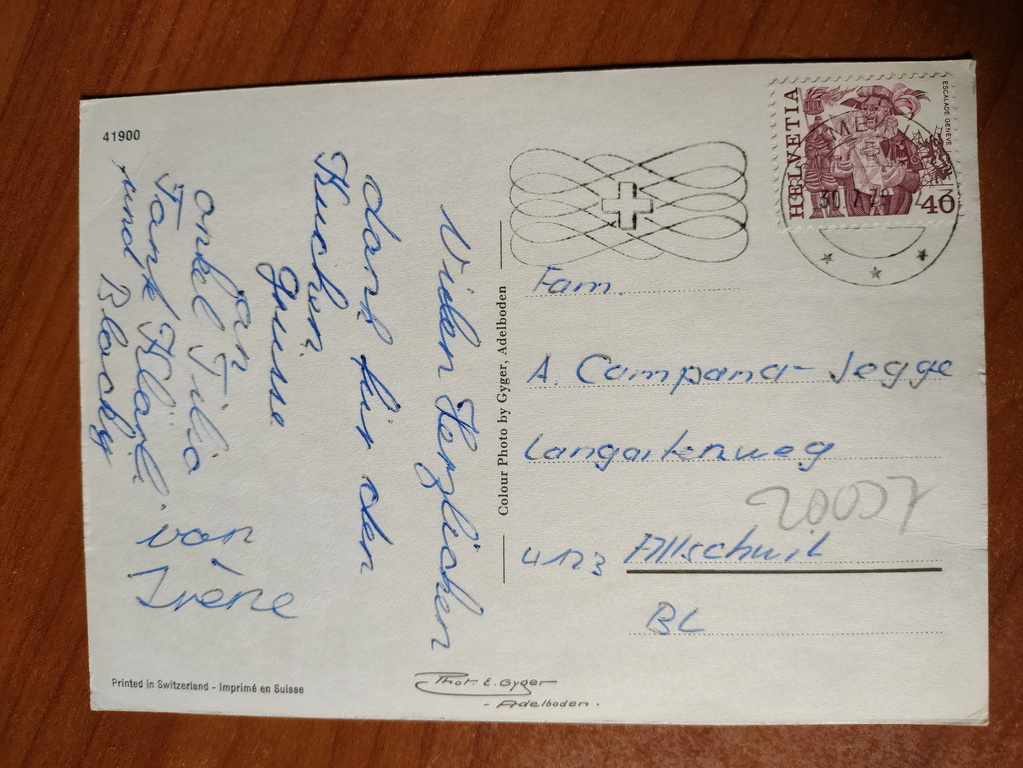 41900
Vielen Herzlichen
dank für den
Kuchen
Grüsse
an
onkel Tilio
Tante Kläril
und Blacky
von
Irène
Printed in Switzerland - Imprimé en Suisse
Colour Photo by Gyger, Adelboden
Phot. E. Gyger
- Adelboden -
HELVETIA
ESCALADE GENÈVE
40
Fam.
A. Campana-Jegge
Langartenweg
4123 Allschwil
BL